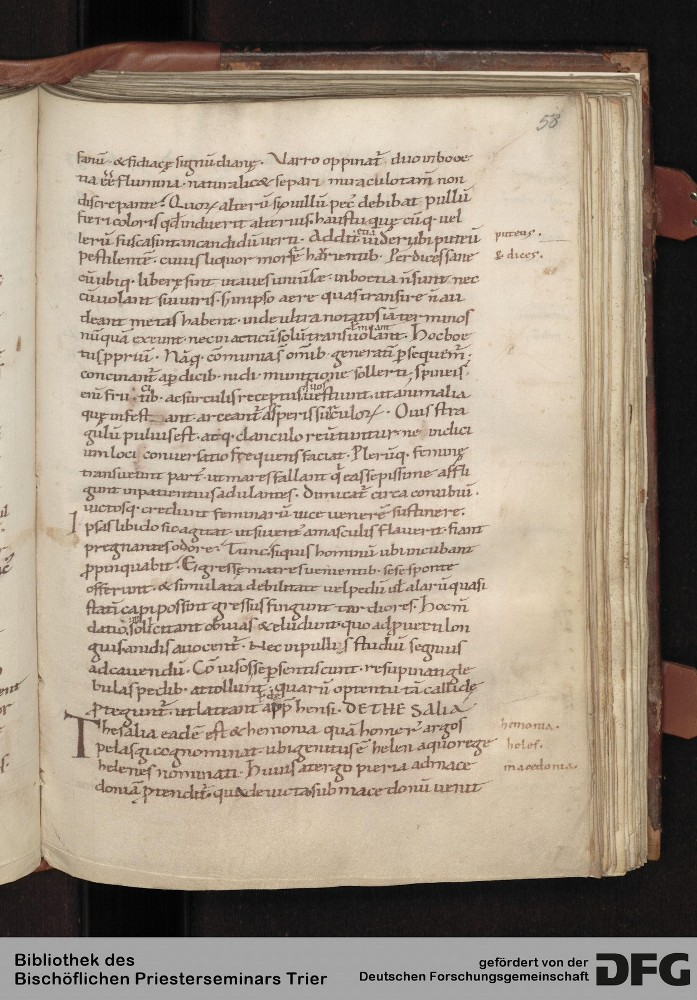 58
fanū · & fidiacę signū dianę · Varro oppinat̄ duo in booe
tia ēē flumina · naturali &
discrepante · Quoꝝ alterū si ouillū pec̄ debibat pullū
fieri coloris qđ induerit alterius · haustu quęcūq· vel
lerū fusca sint in candidū verti · Addit̄ etiā videri ibi puteū
pestilentē · cuius liquor mors ē haurientib· Perdices sane
cū ubiq· liberę sint ut aues univ̄sę in boetia ñ sunt nec
cū volant sui iuris · S; in ipso aere quas transire ñ au
deant metas habent · inde ultra notatos iā terminos
nūquā exeunt nec in atticū solū transmeant · Hoc boe
tus ppriū · Nāq· cōmunia s̄ omīb· generatī p̄sequem̄;
concinant̄ a p̄dicib· nidi munitione sollerti · spineis
enī fruticib· ac surculis receptus suos vestiunt · ut animalia
quę infestant arceant̄ asperis surculoꝝ · Ouis stra
gulū pulvis est · atq· clanculo revertuntur · ne indici
um loci conversatio frequens faciat · Pleruq· feminę
transvehunt part̄ · ut mares fallant q̄ eas sepissime affli
gunt inpatientius adulantes · Dimicat̄ circa conubiū ·
victosq· credunt feminarū vice venerē sustinere ·
Ipsas libido sic agitat · ut si vent̄ a masculis flaverit · fiant
pregnantes odore · Tunc si quis hominū ubi incubant
ppinquabit · Egressę matres venientib· sese sponte
offerunt · & simulata debilitate vel pedū uł alarū quasi
statī capi possint gressus fingunt tardiores · Hoc m̄
datio sollicitant obvias & eludunt · quo ad pvecti lon
gius a nidis avocent̄ · Nec in pullis studiū segnius
ad cavendū · Cō visos se p̄sentiscunt · resupinati gle
bulas pedib· attollunt · quarū optentu tā callidę
p̄tegunt̄ · ut lateant · DE THESALIA
Thesalia eadē est & hemonia quā homer̄ argos
pelasgi cognominat · ubi genitus ē helen a quo rege
helenes nominati · Huius a tergo pieria ad mace
doniā p̄tendit̄ · quę devicta sub macedonū venit
puteus ·
& dices ·
hemonia ·
heles ·
macedonia ·
Bibliothek des
Bischöflichen Priesterseminars Trier
gefördert von der
Deutschen Forschungsgemeinschaft
DFG